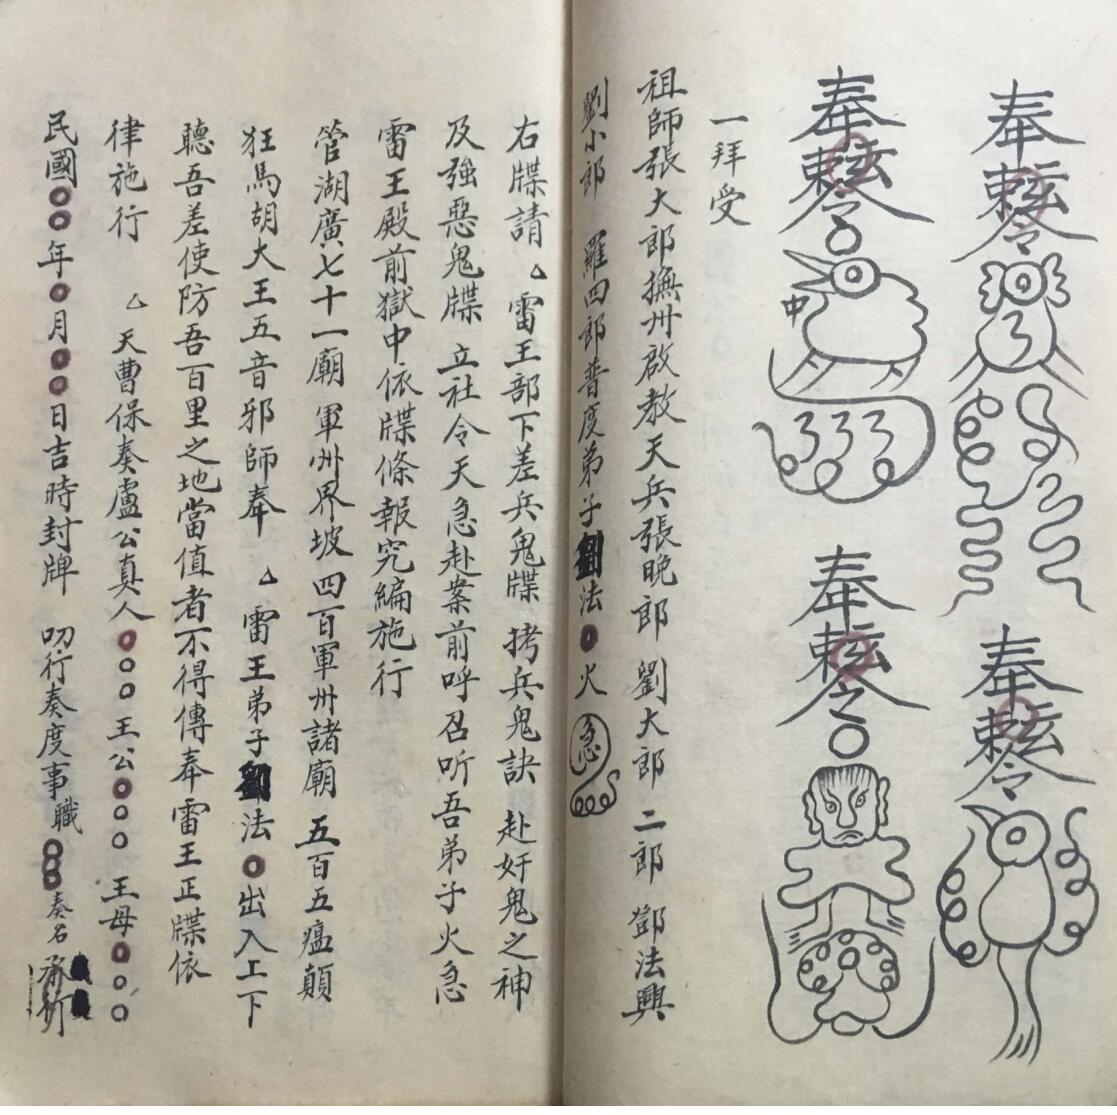 奉勅令
奉勅令
奉勅令
中
奉勅令
一拜受
祖師張大郎撫州啟教天兵張晚郎 劉大郎 二郎 鄧法興
劉小郎 羅四郎普度弟子劉法〇火急
右牒請△雷王部下差兵鬼牒 拷兵鬼訣 赴奸鬼之神
及強惡鬼牒 立社令天急赴案前呼召听吾弟子火急
雷王殿前獄中依牒條報究編施行
管湖廣七十一廟 軍州界坡 四百軍州諸廟 五百五瘟顛
狂馬胡大王五音邪師奉 △雷王弟子劉法〇出入上下
聽吾差使防吾百里之地當值者不得傳奉雷王正牒依
律施行 △天曹保奏盧公真人〇〇〇王公〇〇〇王母〇〇〇
民國〇〇年〇月〇〇日吉時封牌 叨行奏度事職〇〇〇奏名承行